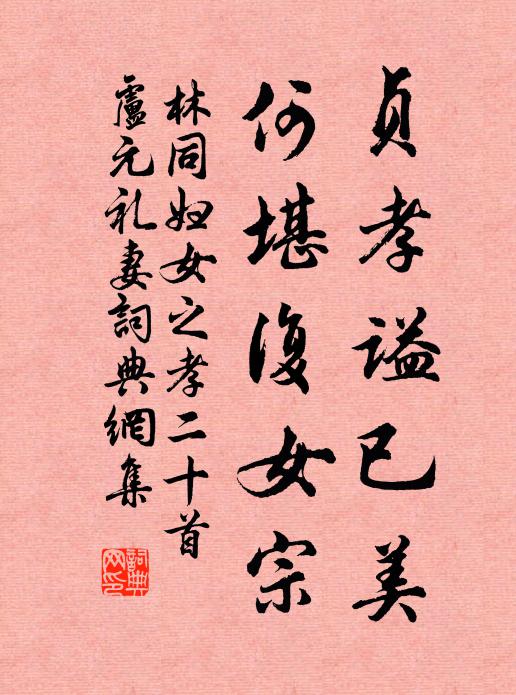 貞孝謚已美
何堪復女宗
林同妇女之孝二十首
盧元礼妻詞典網集
詞典網印